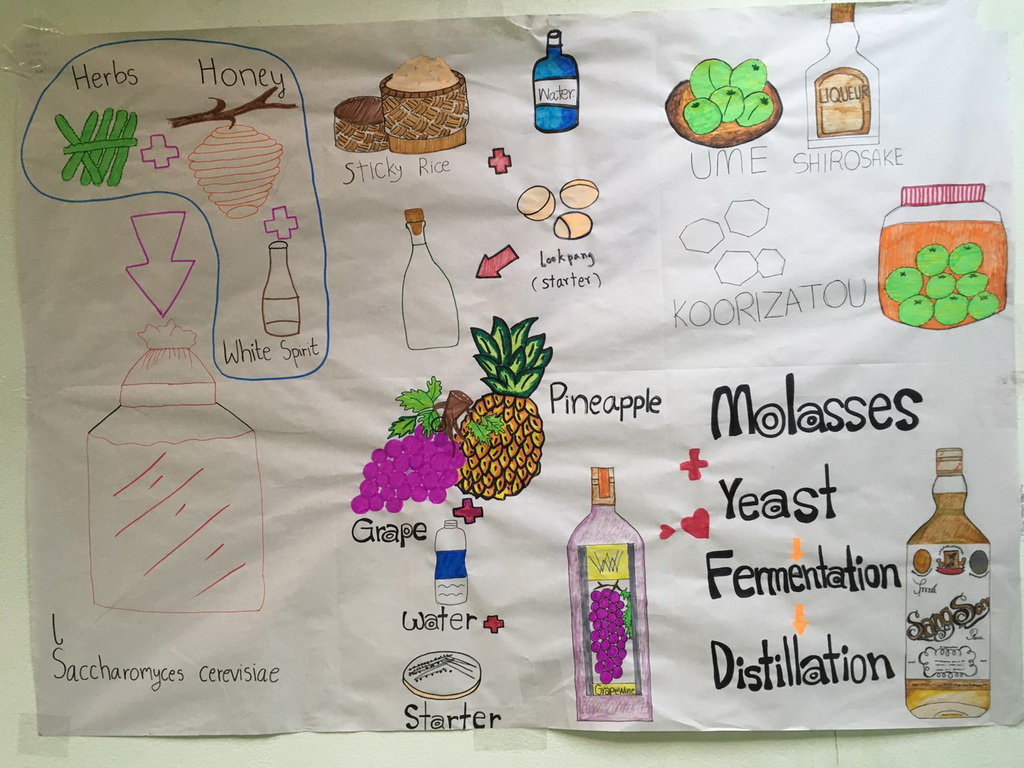 Herbs
Honey
White Spirit
l
Saccharomyces cerevisiae
Sticky Rice
Water
Lookpang
(starter)
UME
SHIROSAKE
LIQUEUR
KOORIZATOU
Pineapple
Grape
Water
Starter
GrapeWine
Molasses
Yeast
Fermentation
Distillation